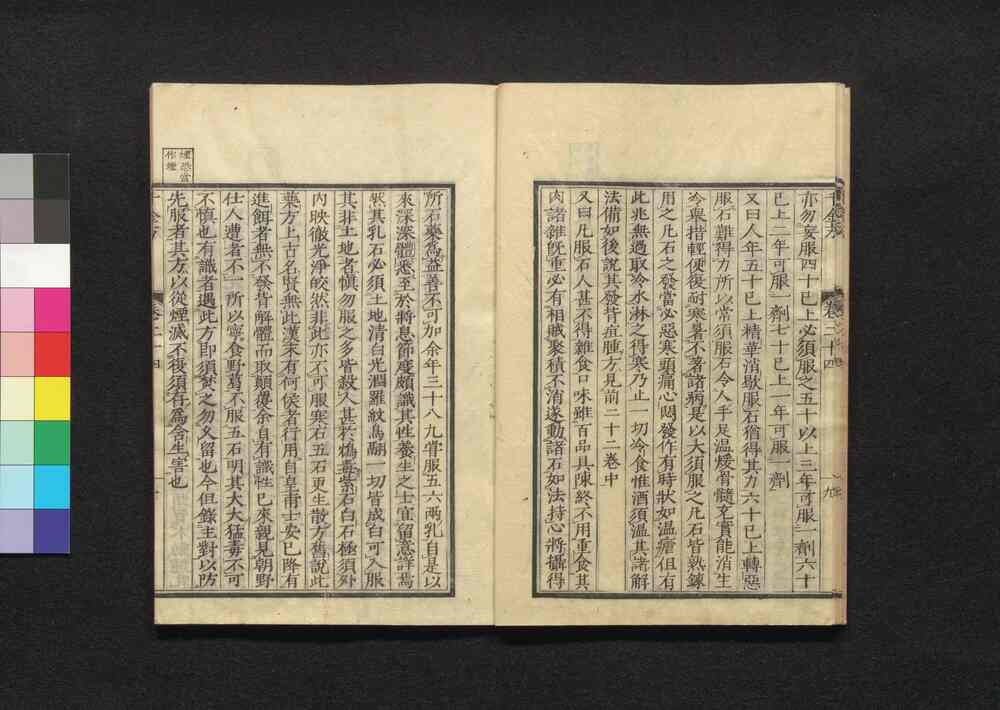 千金方 卷二十四 九
亦勿妄服四十已上必須服之五十以上三年可服一劑六十
已上二年可服一劑七十已上一年可服一劑
又曰人年五十已上精華消歇服石猶得其力六十已上轉惡
服石難得力所以常須服石令人手足溫煖骨髓充實能消生
冷舉措輕便復耐寒暑不著諸病是以大須服之凡石皆熟鍊
用之凡石之發當必惡寒頭痛心悶發作有時狀如溫瘧但有
此兆無過取冷水淋之得寒乃止一切冷食惟酒須溫其諸解
法備如後說其發背疽腫方見前二十二卷中
又曰凡服石人甚不得雜食口味雖百品具陳終不用重食其
肉諸雜旣重必有相賊聚積不消遂動諸石如法持心將攝得
所石藥爲益善不可加余年三十八九嘗服五六兩乳自是以
來深深體悉至於將息節度頗識其性養生之士宜留意詳焉
然其乳石必須土地淸白光潤羅紋鳥翮一切皆成白可入服
其非土地者愼勿服之多皆殺人甚於鴆毒紫石白石極須外
內映徹光淨皎然非此亦不可服寒石五石更生散方舊說此
藥方上古名賢無此漢末有何侯者行用自皇甫士安已降有
進餌者無不發背解體而取顚覆余自有識性已來親見朝野
仕人遭者不一所以寧食野葛不服五石明其大大猛毒不可
不愼也有識者遇此方卽須焚之勿久留也今但錄主對以防
先服者其方以從煙滅不復須存爲含生害也
煙恐當
作堙